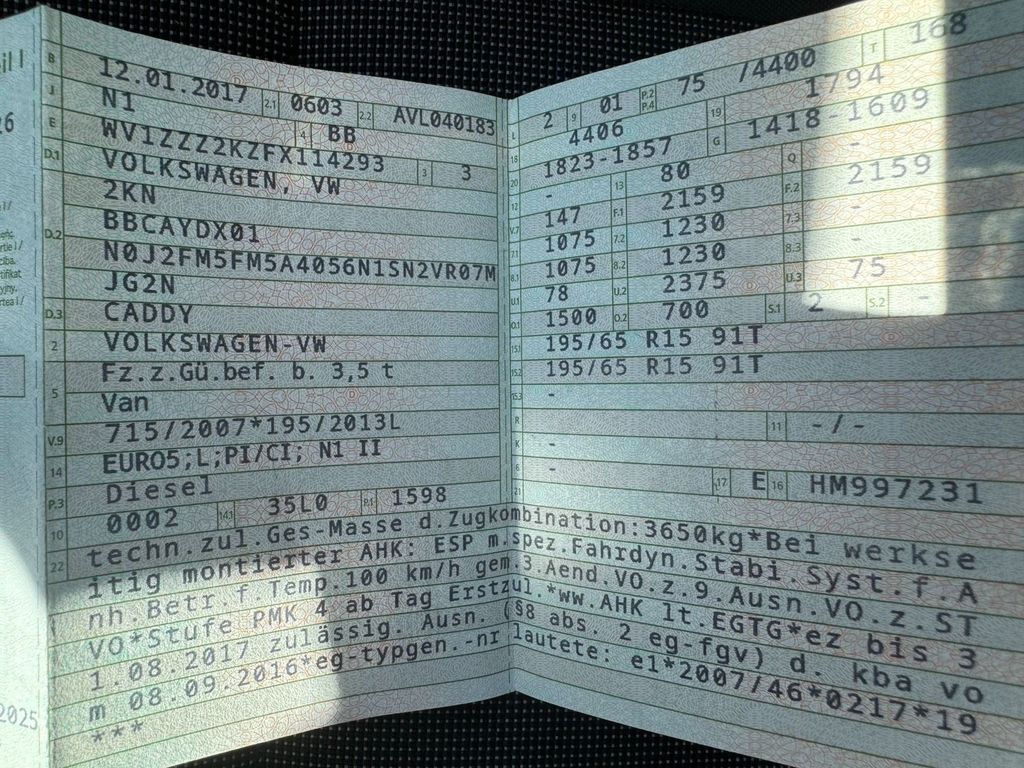 il I
B 12.01.2017 2.1 0603 2.2 AVL040183
J N1 4 BB
E WV1ZZZ2KZFX114293 3 3
D.1 VOLKSWAGEN, VW
2KN
D.2 BBCAYDX01
N0J2FM5FM5A4056N1SN2VR07M
JG2N
D.3 CADDY
2 VOLKSWAGEN-VW
Fz.z.Gü.bef. b. 3,5 t
5 Van
715/2007*195/2013L
V.9 EURO5;L;PI/CI; N1 II
14 Diesel
P.3
10 0002 14.1 35L0 P.1 1598
L 2 9 01 P.2 P.4 75 /4400 T 168
18 4406 19 1794
20 1823-1857 G 1418-1609
12 - 13 80 Q -
V.7 147 F.1 2159 F.2 2159
7.1 1075 7.2 1230 7.3 -
8.1 1075 8.2 1230 8.3 -
U.1 78 U.2 2375 U.3 75
O.1 1500 O.2 700 S.1 2 S.2 -
15.1 195/65 R15 91T
15.2 195/65 R15 91T
15.3 -
R 11 -/-
K -
6 - 17 E 16 HM997231
21
22 techn.zul.Ges-Masse d.Zugkombination:3650kg*Bei werkse
itig montierter AHK: ESP m.spez.Fahrdyn.Stabi.Syst.f.A
nh.Betr.f.Temp.100 km/h gem.3.Aend.VO.z.9.Ausn.VO.z.ST
VO*Stufe PMK 4 ab Tag Erstzul.*ww.AHK lt.EGTG*ez bis 3
1.08.2017 zulässig. Ausn.(§8 abs. 2 eg-fgv) d. kba vo
m 08.09.2016*eg-typgen.-nr lautete: e1*2007/46*0217*19
***
2025